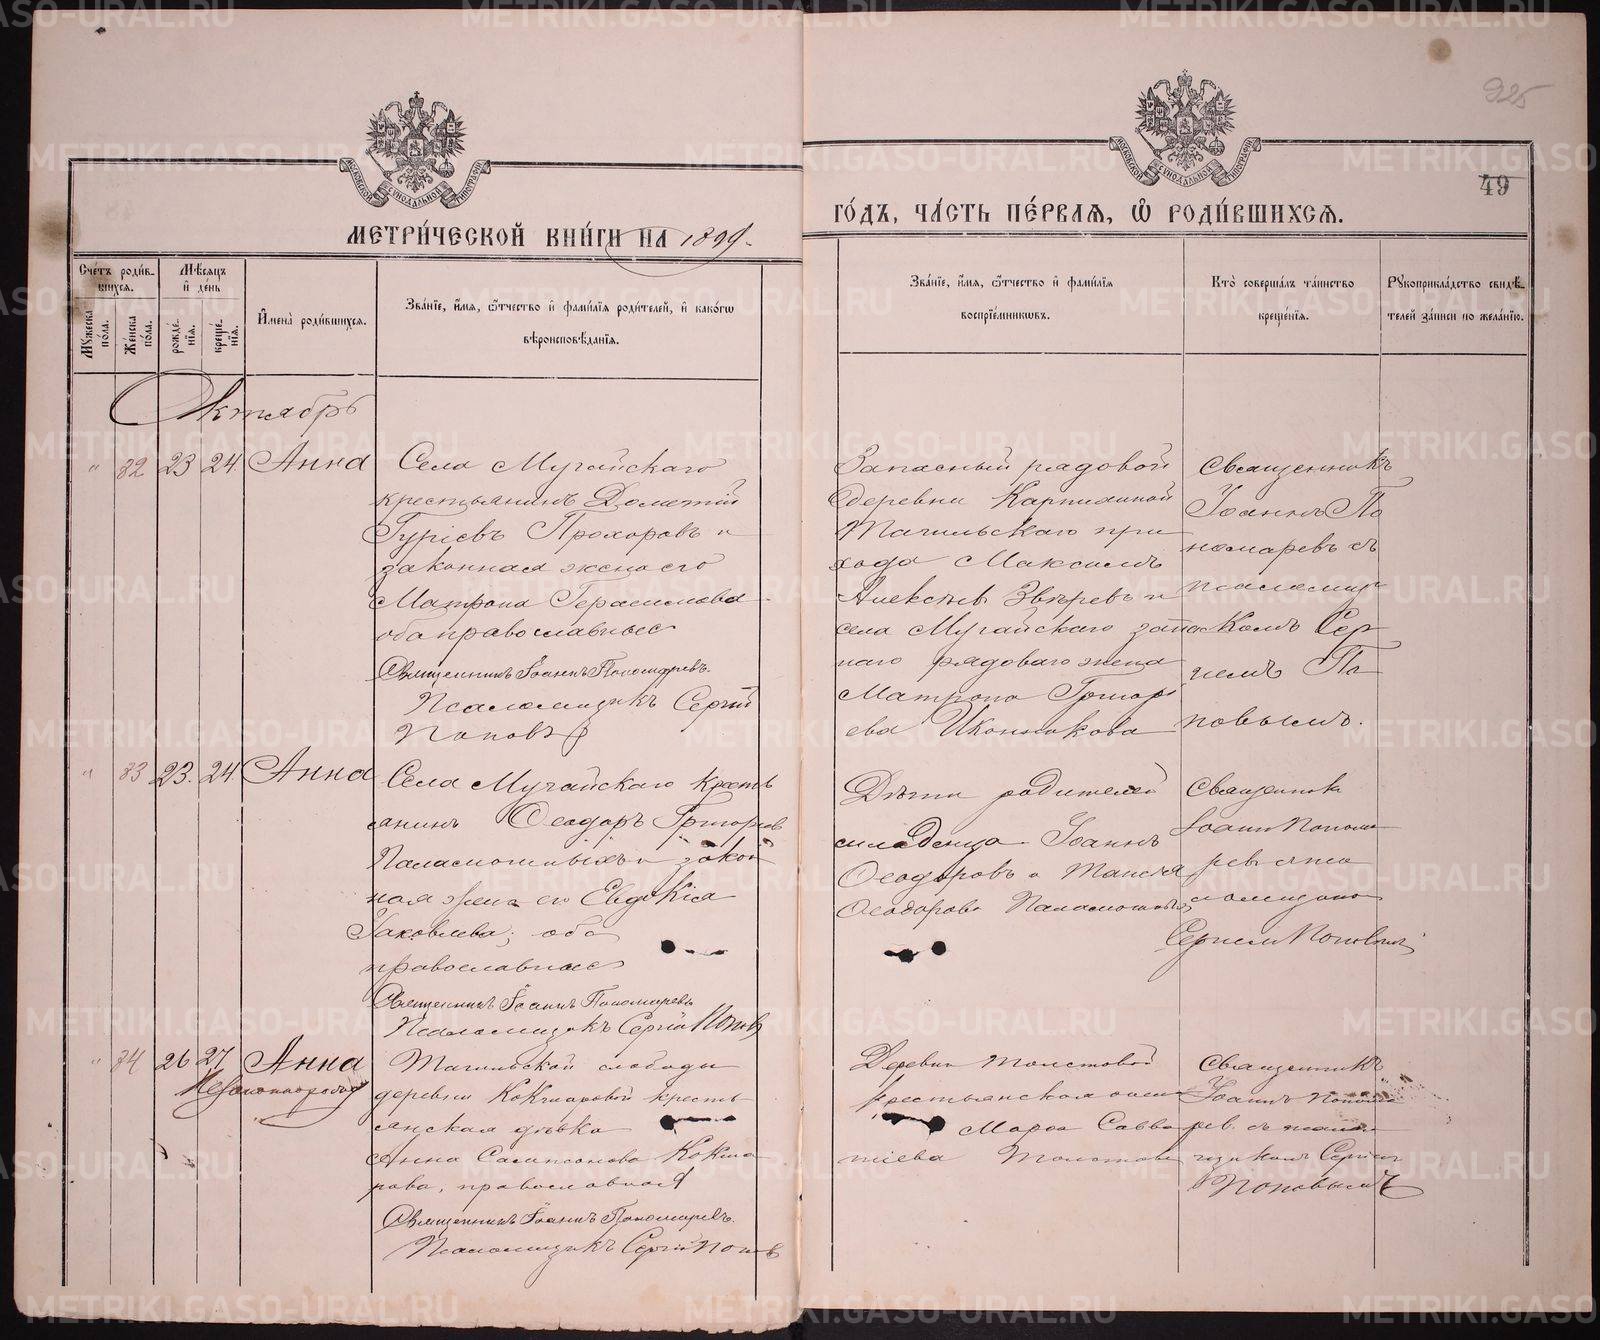 925
49
МЕТРИ́ЧЕСКОЙ КНИ́ГИ НА 1899.
ГО́ДЪ, ЧА́СТЬ ПЕ́РВАЯ, Ѡ РОДИ́ВШИХСЯ.
Сче́тъ роди́вшихся.
Му́жеска по́ла.
Же́нска по́ла.
Мѣ́сяцъ и де́нь
рожде́нїя.
креще́нїя.
И҆мена̀ роди́вшихся.
Зва́нїе, и҆́мя, ѻ҆́тчество и҆ фами́лїя роди́телей, и҆ како́гѡ
вѣроисповѣ́данїя.
Зва́нїе, и҆́мя, ѻ҆́тчество и҆ фами́лїя
воспрїе́мникѡвъ.
Кто̀ соверша́лъ та́инство
креще́нїя.
Рꙋкоприкла́дство свидѣ́-
телей за́писи по жела́нїю.
Октябрь
" 32 23 24. Анна
Села Мугайскаго
крестьянинъ Дометій
Гуріевъ Прохоровъ и
законная жена его
Матрона Герасимова
оба православные
Священникъ Іоаннъ Пономаревъ.
Псаломщикъ Сергій
Поповъ
Запасный рядовой
деревни Карпихиной
Тагильскаго при
хода Максимъ
Алексѣев Звѣревъ и
села Мугайскаго запас
наго рядоваго жена
Матрона Григорь
ева Иконникова
Священникъ
Іоаннъ По
номаревъ съ
псаломщи
комъ Сер
гіемъ По
повымъ.
" 33 23. 24 Анна
Села Мугайскаго кресть
янинъ Ѳеодоръ Григорьев
Паламошныхъ и закон
ная жена его Евдокія
Іаковлева; оба
православные
Священникъ Іоаннъ Пономаревъ
Псаломщикъ Сергій Поповъ
Дѣти родителей
младенца Іоаннъ
Ѳеодоровъ и Таисія
Ѳеодорова Паламошныхъ
Священникъ
Іоаннъ Понома
рев с пса
ломщикомъ
Сергіем Поповымъ
" 34 26 27 Анна
Незаконнорожд
Тагильской слободы
деревни Кокшаровой кресть
янская дѣвка
Анна Сампсонова Кокша
рова, православная
Священникъ Іоаннъ Пономаревъ.
Псаломщикъ Сергій Попов
Деревни Толстовой
крестьянская
Марѳа Савва
тіева Толстова
Священникъ
Іоаннъ Понома
рев. съ псалом
щикомъ Сергіем
Поповымъ